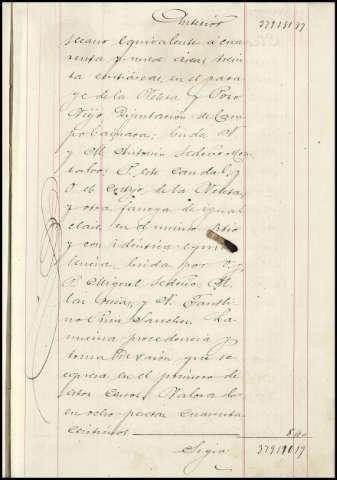 Anterior 37918177
secano equivalente á cua
renta y nueve áreas, trein
ta centiáreas, en el para
je de la Veleta y Pozo
Viejo, Diputación de Cam
po Cajuara; linda N
y M. Antonio Sedeño
P. este Candal, y
O el Cortijo de la Veleta,
y otra fanega de igual
clase, en el mismo sitio
y con idéntica equiva
lencia, linda por
P. Miguel Sedeño, M.
las Cucas, y N. Fausti
no Ruiz Sanchez. La
misma procedencia y
toma de razón que se
expresa en el primero de
estos censos. Valorado
en ocho pesetas cuarenta
céntimos 8,40
Sigue